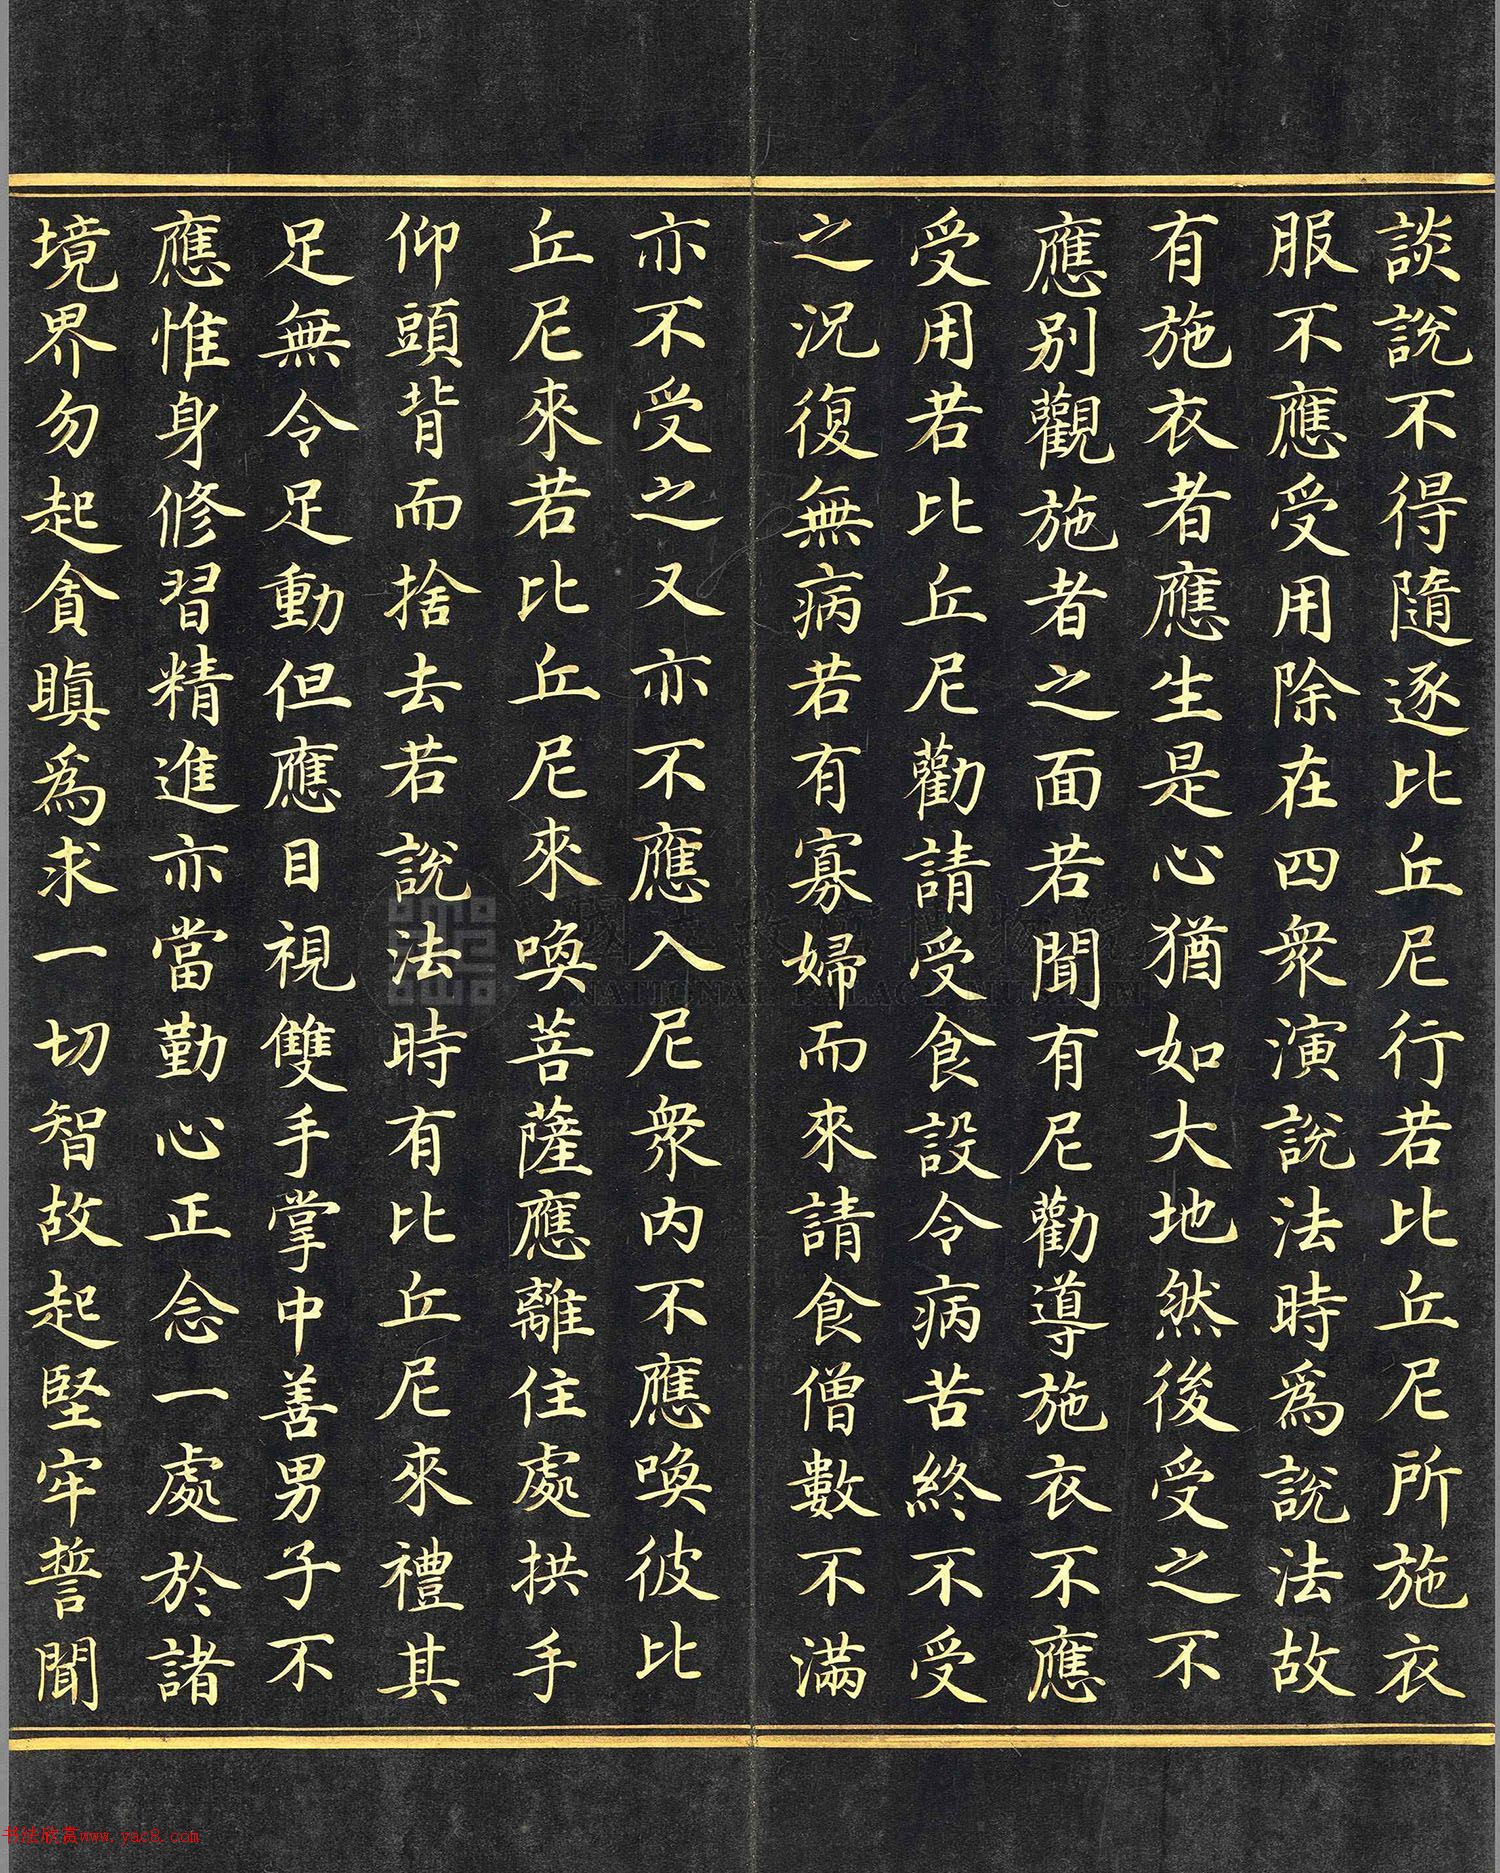 談說不得隨逐比丘尼行若比丘尼所施衣
服不應受用除在四衆演說法時爲說法故
有施衣者應生是心猶如大地然後受之不
應別觀施者之面若聞有尼勸導施衣不應
受用若比丘尼勸請受食設令病苦終不受
之況復無病若有寡婦而來請食僧數不滿
亦不受之又亦不應入尼衆内不應喚彼比
丘尼來若比丘尼來喚菩薩應離住處拱手
仰頭背而捨去若說法時有比丘尼來禮其
足無令足動但應目視雙手掌中善男子不
應惟身修習精進亦當勤心正念一處於諸
境界勿起貪瞋爲求一切智故起堅牢誓聞
國立故宮博物院
NATIONAL PALACE MUSEUM
书法欣赏www.yac8.com